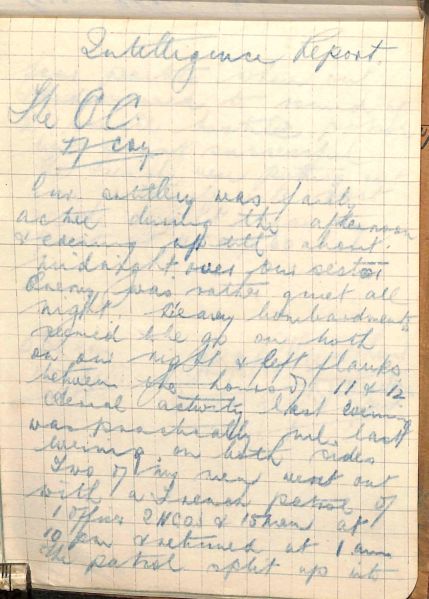 Intelligence Report
The O.C.
Coy
Our artillery was fairly
active during the afternoon
& evening up till about
midnight over our sector
Enemy was rather quiet all
night. Heavy bombardments
seemed to be go on both
on our right & left flanks
between the hours of 11 & 12
Aerial activity last evening
was practically nil last
evening on both sides
Two of my men went out
with a French patrol of
1 officer 2 NCOs & 15 men at
10 pm & returned at 1 am
The patrol split up into